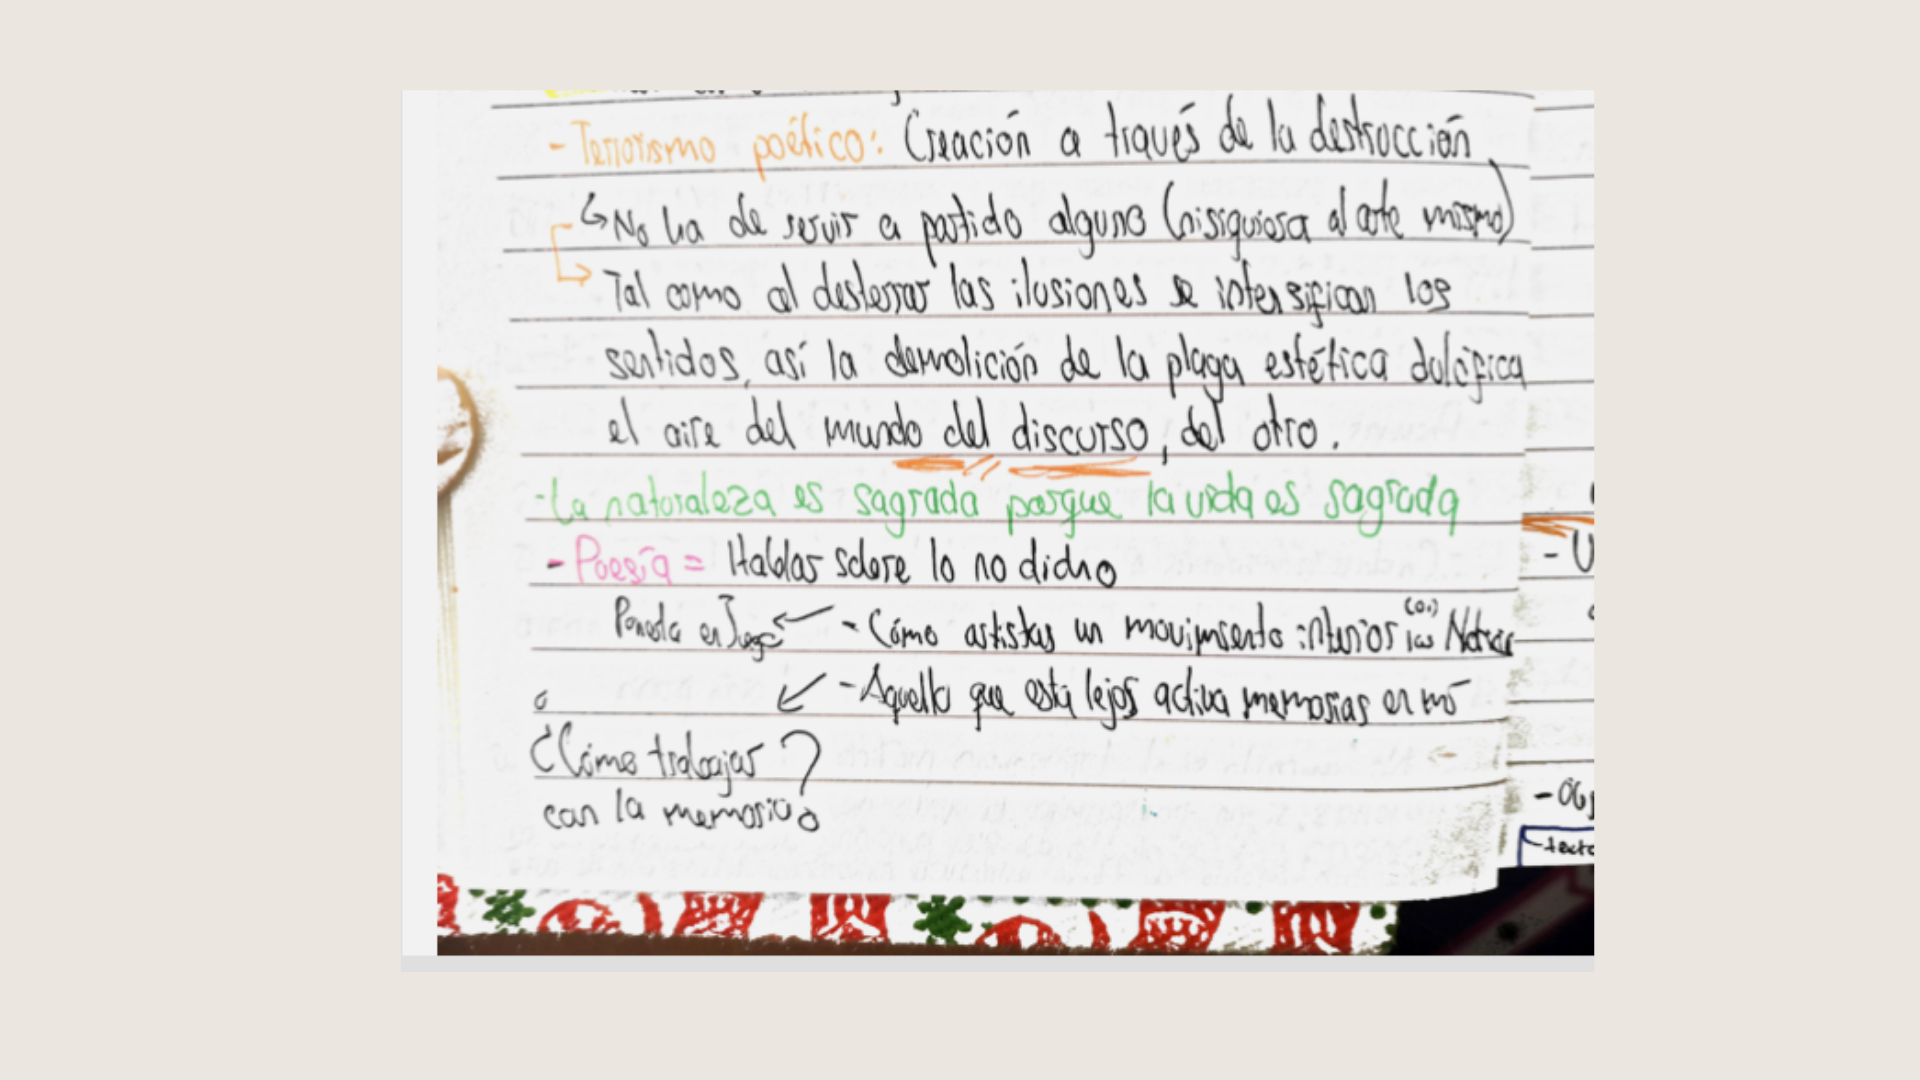 - Terrorismo poético: Creación a través de la destrucción
↳ No ha de servir a partido alguno (nisiquiera al arte mismo)
Tal como al desterrar las ilusiones se intensifican los
sentidos, así la demolición de la plaga estética dulcifica
el aire del mundo del discurso, del otro.
- La naturaleza es sagrada porque la vida es sagrada
- Poesía = Hablar sobre lo no dicho
en
- Cómo artistas un movimiento interior
- Aquello que está lejos activa memorias en mí
¿Cómo trabajar
con la memoria?
- U
- Obj
- texto